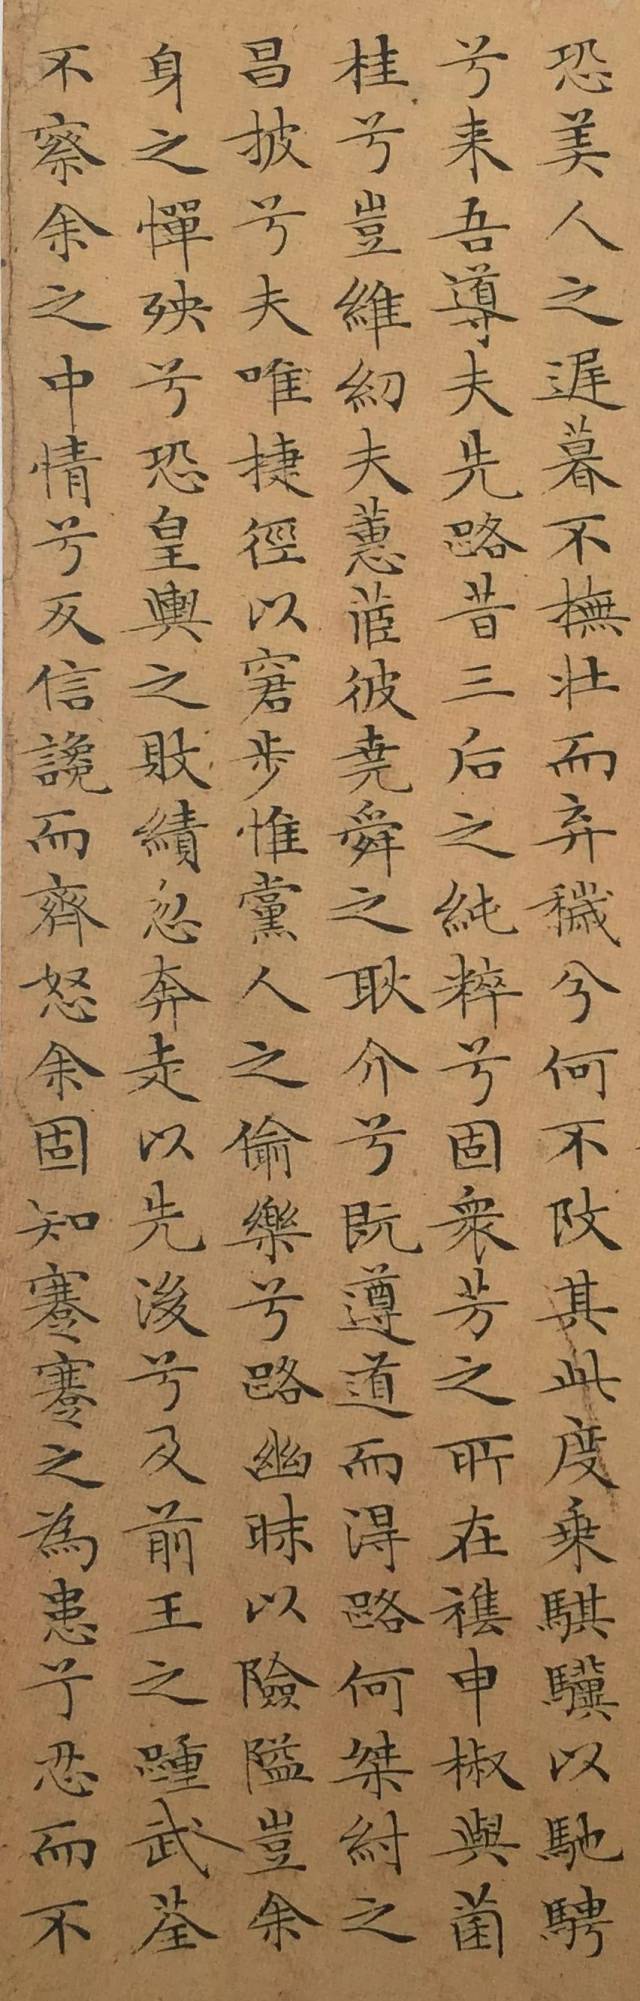 恐美人之遲暮不撫壯而弃穢兮何不改其此度乗騏驥以馳騁
兮来吾導夫先路昔三后之純粹兮固衆芳之所在襍申椒與菌
桂兮豈維紉夫蕙茞彼堯舜之耿介兮既遵道而得路何桀紂之
昌披兮夫唯捷徑以窘步惟黨人之偷樂兮路幽昧以險隘豈余
身之憚殃兮恐皇輿之敗績忽奔走以先後兮及前王之踵武荃
不察余之中情兮反信讒而齊怒余固知謇謇之為患兮忍而不